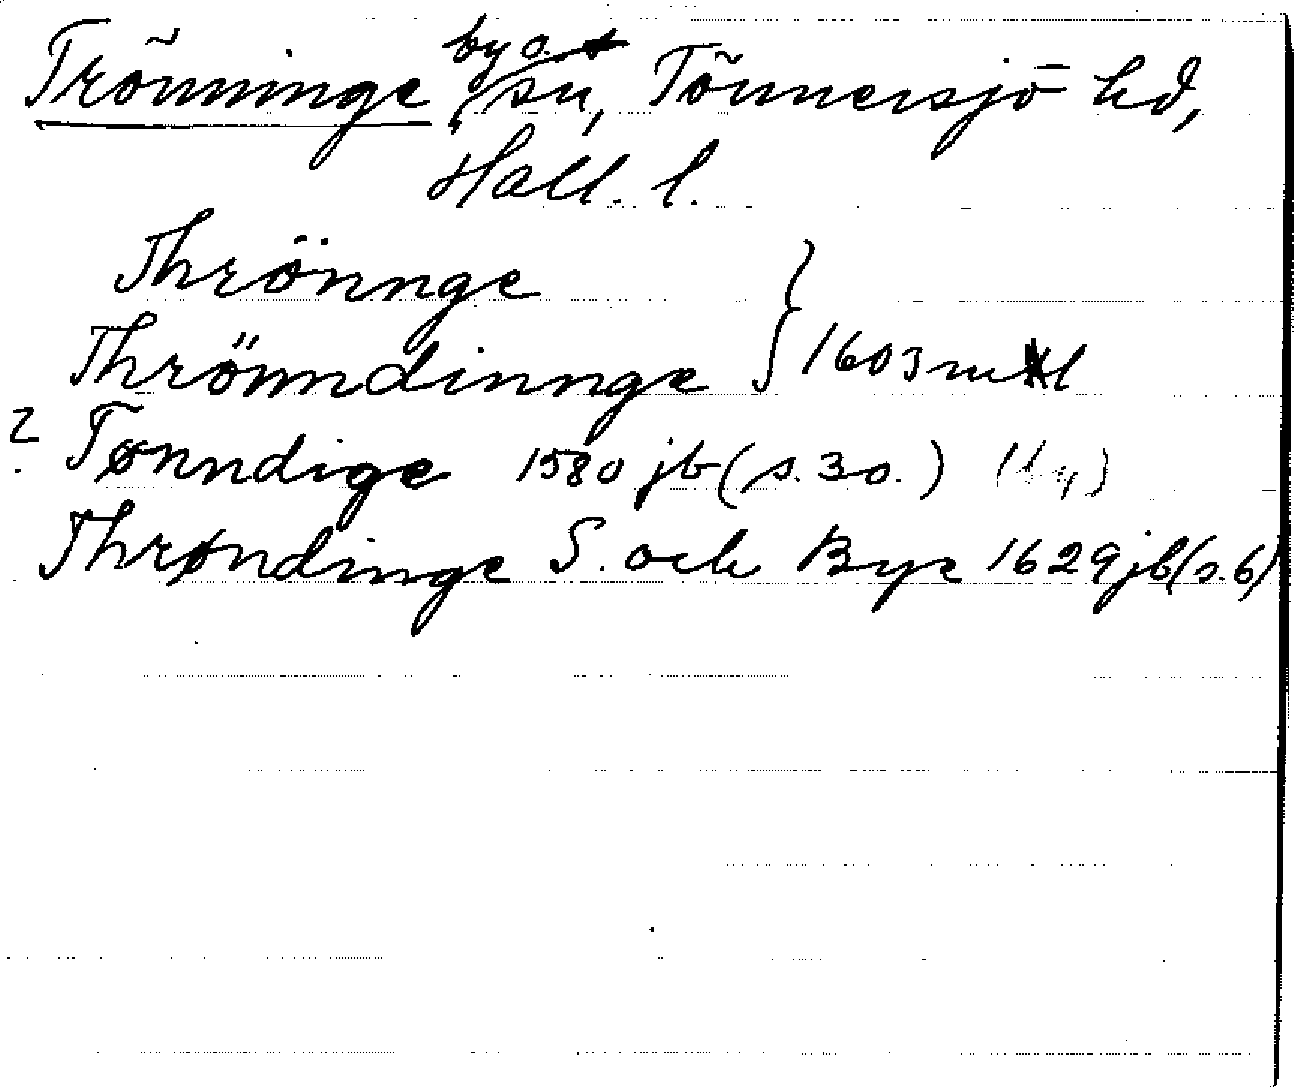 Trönninge by o. sn, Tönnersjö hd,
Hall. l.
Thrönnge
Thrönndinnge } 1603 mtl
? Tønndige 1580 jb (s. 30.)
Thrøndinge S. och Bye 1629 jb (s. 6)